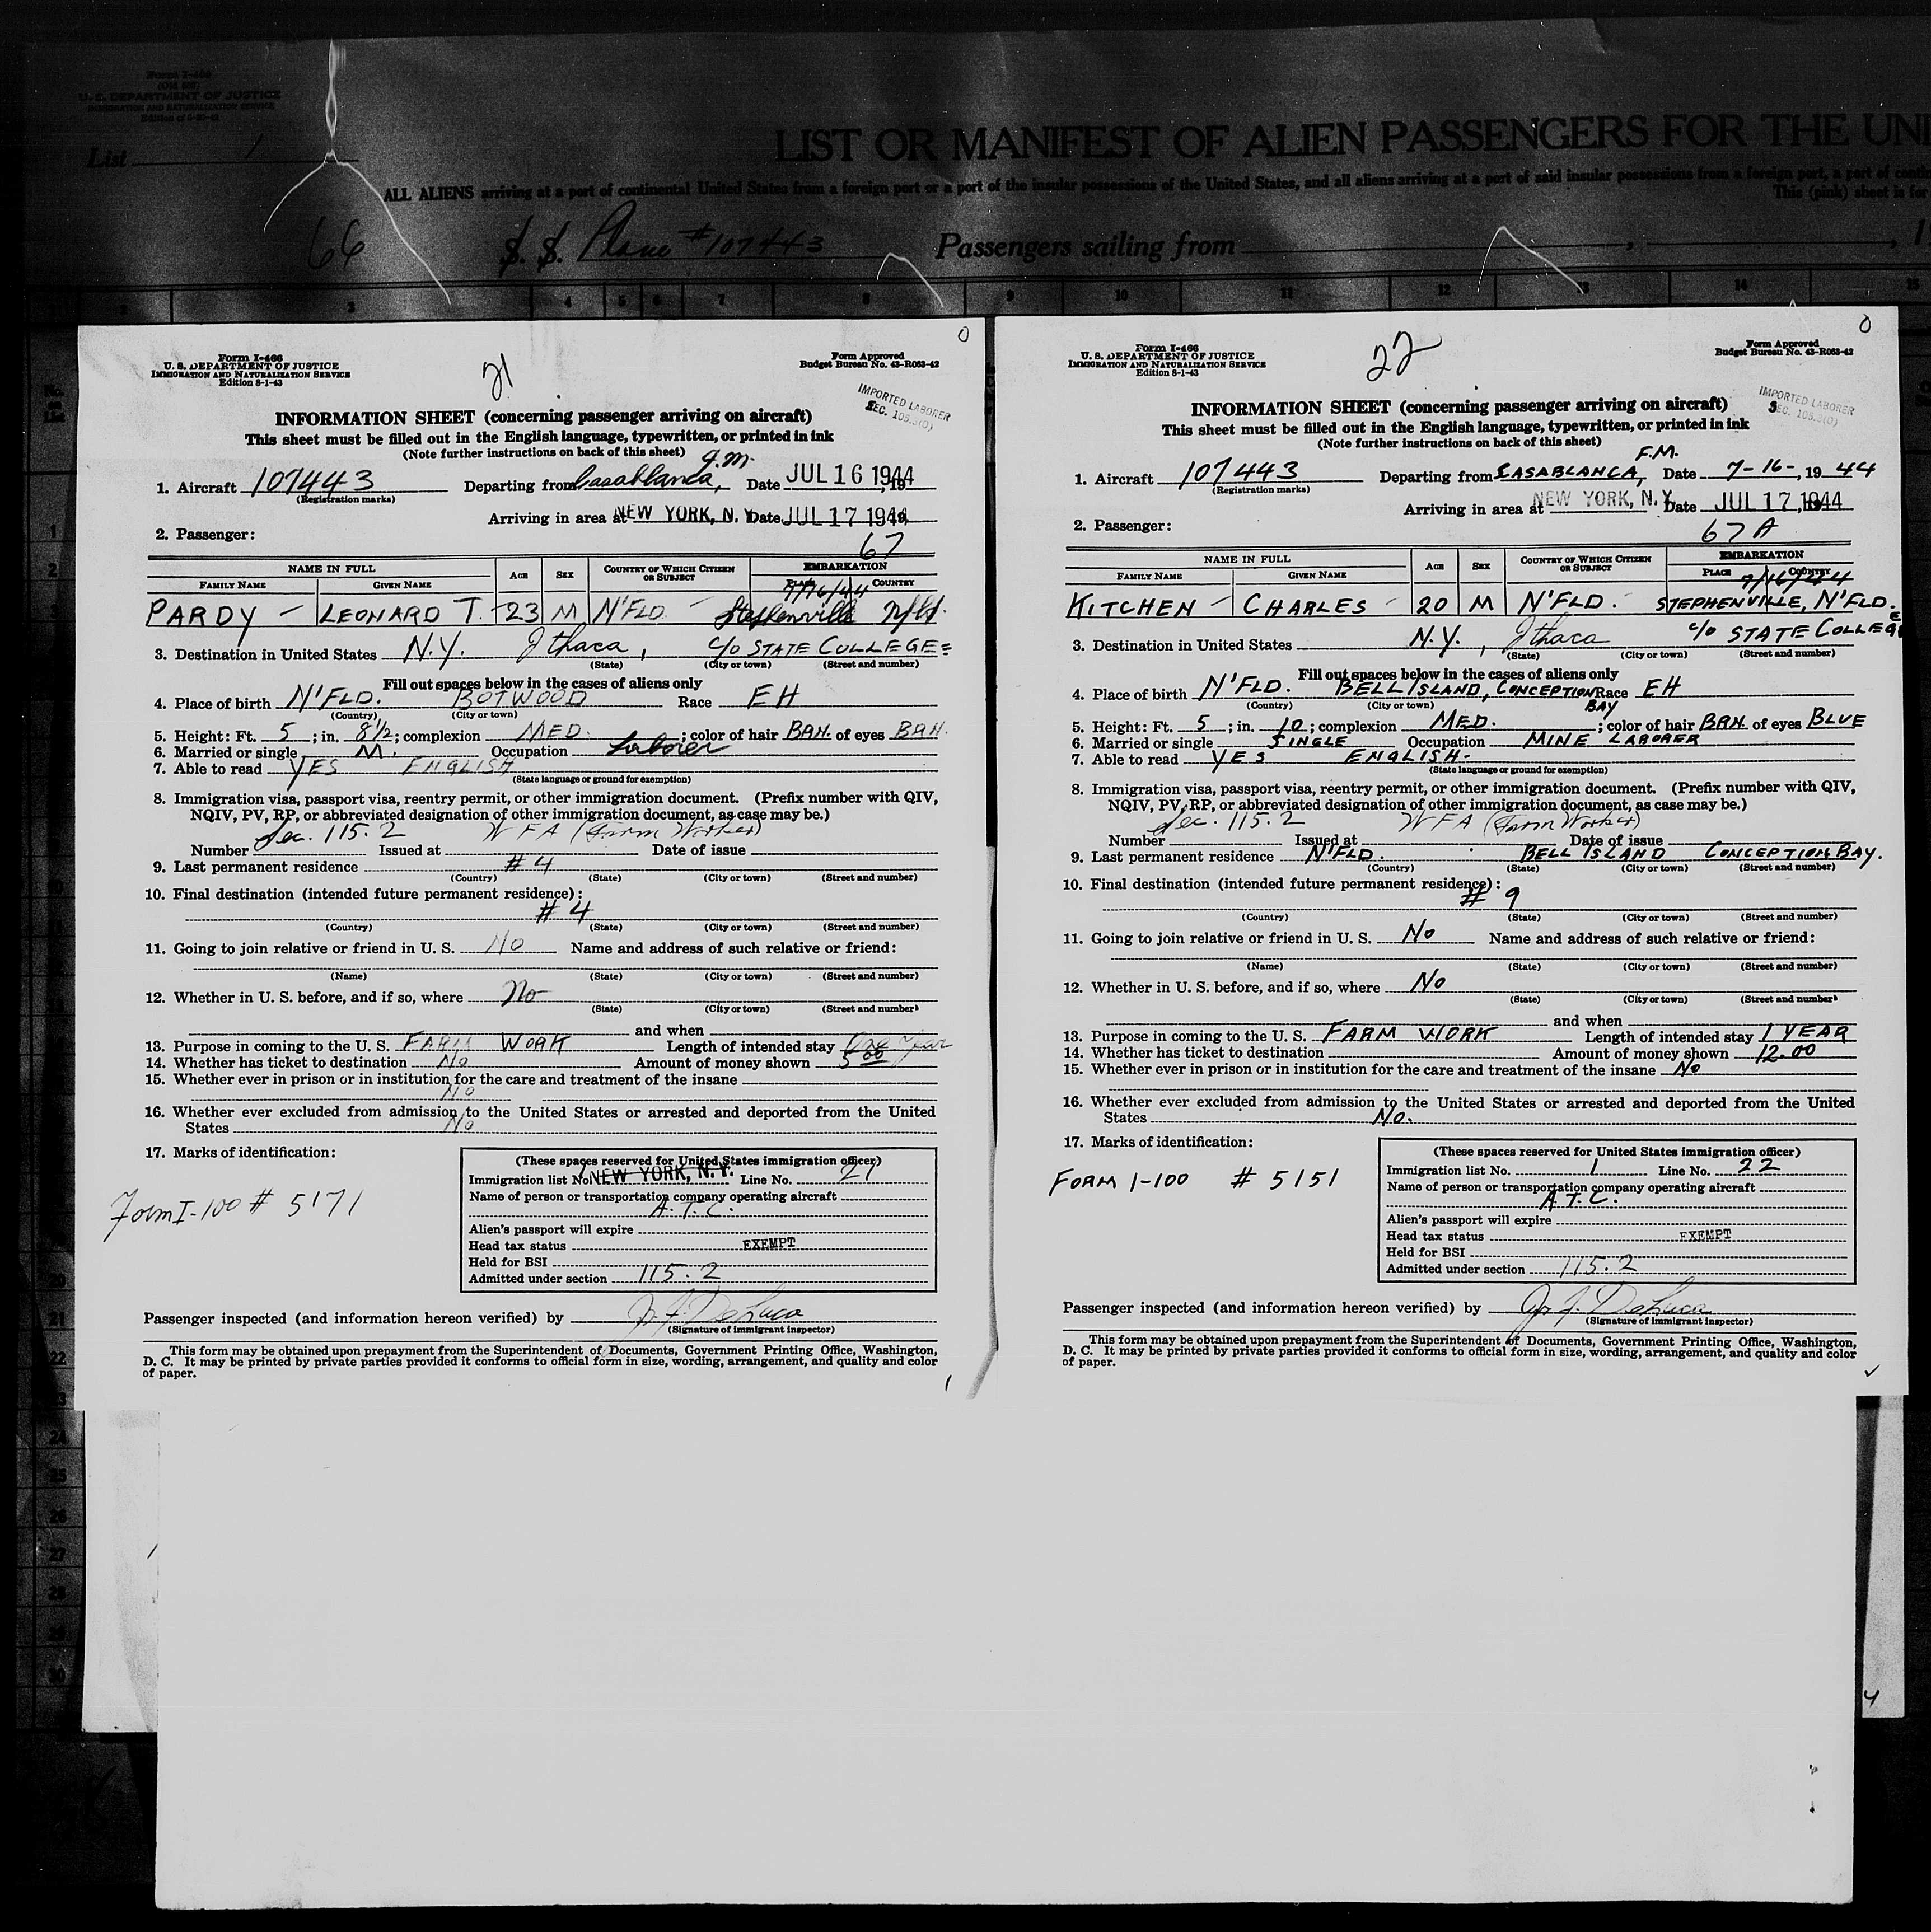 Form I-466
U. S. DEPARTMENT OF JUSTICE
IMMIGRATION AND NATURALIZATION SERVICE
List 1
LIST OR MANIFEST OF ALIEN PASSENGERS FOR THE UN
ALL ALIENS arriving at a port of continental United States from a foreign port or a port of the insular possessions of the United States, and all aliens arriving at a port of said insular possessions from a foreign port, a port of conti
This (pink) sheet is for
66 S. S. Plane #107443 Passengers sailing from
2 3 4 5 6 7 8 9 10 11 12 13 14 15
0
Form I-466
U. S. DEPARTMENT OF JUSTICE
IMMIGRATION AND NATURALIZATION SERVICE
Edition 8-1-43
21
Form Approved
Budget Bureau No. 43-R063-42
IMPORTED LABORER
SEC. 105.3(0)
INFORMATION SHEET (concerning passenger arriving on aircraft)
This sheet must be filled out in the English language, typewritten, or printed in ink
(Note further instructions on back of this sheet)
1. Aircraft 107443 Departing from Casablanca, F.M. Date JUL 16 1944
(Registration marks)
Arriving in area at NEW YORK, N.Y. Date JUL 17 1944
2. Passenger:
67
NAME IN FULL AGE SEX COUNTRY OF WHICH CITIZEN OR SUBJECT EMBARKATION
FAMILY NAME GIVEN NAME PLACE COUNTRY
7/16/44
PARDY - LEONARD T. - 23 M N'FLD. - Stephenville Nfld.
3. Destination in United States N.Y. Ithaca, c/o STATE COLLEGE
(State) (City or town) (Street and number)
Fill out spaces below in the cases of aliens only
4. Place of birth N'FLD. BOTWOOD Race EH
(Country) (City or town)
5. Height: Ft. 5; in. 8½; complexion MED.; color of hair BRN. of eyes BRN.
6. Married or single M. Occupation Laborer
7. Able to read YES ENGLISH
(State language or ground for exemption)
8. Immigration visa, passport visa, reentry permit, or other immigration document. (Prefix number with QIV,
NQIV, PV, RP, or abbreviated designation of other immigration document, as case may be.)
Sec. 115.2 WFA (Farm Worker)
Number Issued at Date of issue
9. Last permanent residence #4
(Country) (State) (City or town) (Street and number)
10. Final destination (intended future permanent residence):
#4
(Country) (State) (City or town) (Street and number)
11. Going to join relative or friend in U. S. No Name and address of such relative or friend:
(Name) (State) (City or town) (Street and number)
12. Whether in U. S. before, and if so, where No
(State) (City or town) (Street and number)
and when
13. Purpose in coming to the U. S. FARM WORK Length of intended stay One Year
14. Whether has ticket to destination No Amount of money shown 5 00
15. Whether ever in prison or in institution for the care and treatment of the insane
No
16. Whether ever excluded from admission to the United States or arrested and deported from the United
States No
17. Marks of identification:
Form I-100 # 5171
(These spaces reserved for United States immigration officer)
Immigration list No. 1 NEW YORK, N.Y. Line No. 21
Name of person or transportation company operating aircraft
A.T.C.
Alien's passport will expire
Head tax status EXEMPT
Held for BSI
Admitted under section 115.2
Passenger inspected (and information hereon verified) by
(Signature of immigrant inspector)
This form may be obtained upon prepayment from the Superintendent of Documents, Government Printing Office, Washington,
D. C. It may be printed by private parties provided it conforms to official form in size, wording, arrangement, and quality and color
of paper.
0
Form I-466
U. S. DEPARTMENT OF JUSTICE
IMMIGRATION AND NATURALIZATION SERVICE
Edition 8-1-43
22
Form Approved
Budget Bureau No. 43-R063-42
IMPORTED LABORER
SEC. 105.3(0)
INFORMATION SHEET (concerning passenger arriving on aircraft)
This sheet must be filled out in the English language, typewritten, or printed in ink
(Note further instructions on back of this sheet)
1. Aircraft 107443 Departing from CASABLANCA, F.M. Date 7-16-, 1944
(Registration marks)
Arriving in area at NEW YORK, N.Y. Date JUL 17 1944
2. Passenger:
67 A
NAME IN FULL AGE SEX COUNTRY OF WHICH CITIZEN OR SUBJECT EMBARKATION
FAMILY NAME GIVEN NAME PLACE COUNTRY
7/16/44
KITCHEN - CHARLES - 20 M N'FLD. - STEPHENVILLE, N'FLD.
3. Destination in United States N.Y., Ithaca c/o STATE COLLEGE
(State) (City or town) (Street and number)
Fill out spaces below in the cases of aliens only
4. Place of birth N'FLD. BELL ISLAND, CONCEPTION BAY Race EH
(Country) (City or town)
5. Height: Ft. 5; in. 10; complexion MED.; color of hair BRN. of eyes BLUE
6. Married or single SINGLE Occupation MINE LABORER
7. Able to read YES ENGLISH-
(State language or ground for exemption)
8. Immigration visa, passport visa, reentry permit, or other immigration document. (Prefix number with QIV,
NQIV, PV, RP, or abbreviated designation of other immigration document, as case may be.)
Sec. 115.2 WFA (Farm Worker)
Number Issued at Date of issue
9. Last permanent residence N'FLD. BELL ISLAND CONCEPTION BAY.
(Country) (State) (City or town) (Street and number)
10. Final destination (intended future permanent residence):
# 9
(Country) (State) (City or town) (Street and number)
11. Going to join relative or friend in U. S. No Name and address of such relative or friend:
(Name) (State) (City or town) (Street and number)
12. Whether in U. S. before, and if so, where No
(State) (City or town) (Street and number)
and when
13. Purpose in coming to the U. S. FARM WORK Length of intended stay 1 YEAR
14. Whether has ticket to destination Amount of money shown 12.00
15. Whether ever in prison or in institution for the care and treatment of the insane No
16. Whether ever excluded from admission to the United States or arrested and deported from the United
States No.
17. Marks of identification:
FORM 1-100 # 5151
(These spaces reserved for United States immigration officer)
Immigration list No. 1 Line No. 22
Name of person or transportation company operating aircraft
A.T.C.
Alien's passport will expire
Head tax status EXEMPT
Held for BSI
Admitted under section 115.2
Passenger inspected (and information hereon verified) by
(Signature of immigrant inspector)
This form may be obtained upon prepayment from the Superintendent of Documents, Government Printing Office, Washington,
D. C. It may be printed by private parties provided it conforms to official form in size, wording, arrangement, and quality and color
of paper.